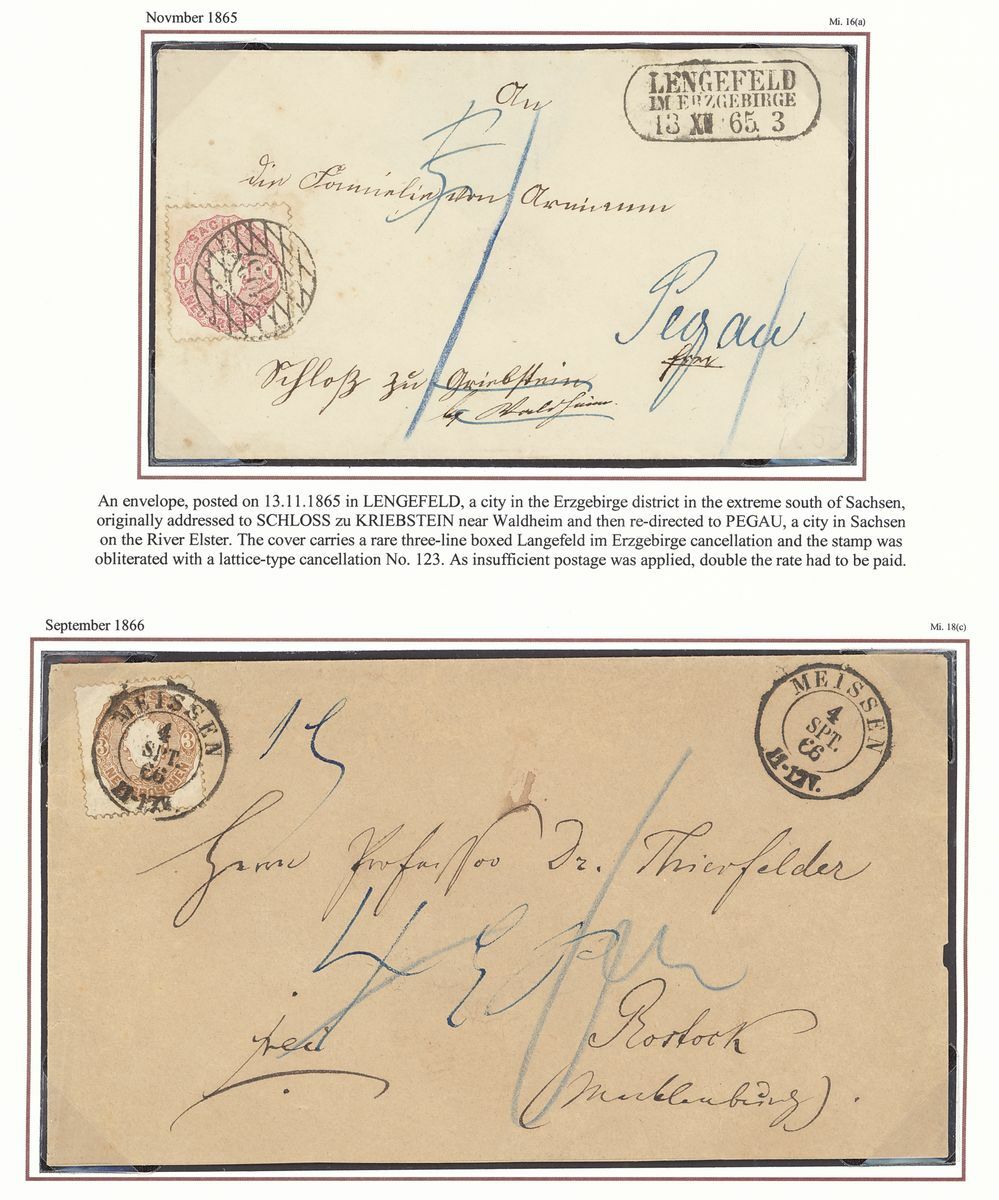 Novmber 1865
Mi. 16(a)
LENGEFELD
IM ERZGEBIRGE
13 XII 65. 3
An
5
die Familie von Arnimm
SACHSEN
1 1
Pegau
frei
Schloß zu Griebstein
by Waldheim.
An envelope, posted on 13.11.1865 in LENGEFELD, a city in the Erzgebirge district in the extreme south of Sachsen,
originally addressed to SCHLOSS zu KRIEBSTEIN near Waldheim and then re-directed to PEGAU, a city in Sachsen
on the River Elster. The cover carries a rare three-line boxed Langefeld im Erzgebirge cancellation and the stamp was
obliterated with a lattice-type cancellation No. 123. As insufficient postage was applied, double the rate had to be paid.
September 1866
Mi. 18(c)
MEISSEN
4
SPT.
66
11-12V.
3 3
NEUGROSCHEN
MEISSEN
4
SPT.
66
11-12V.
Herrn Professor Dr. Thierfelder
4
frei
Rostock
(Mecklenburg).